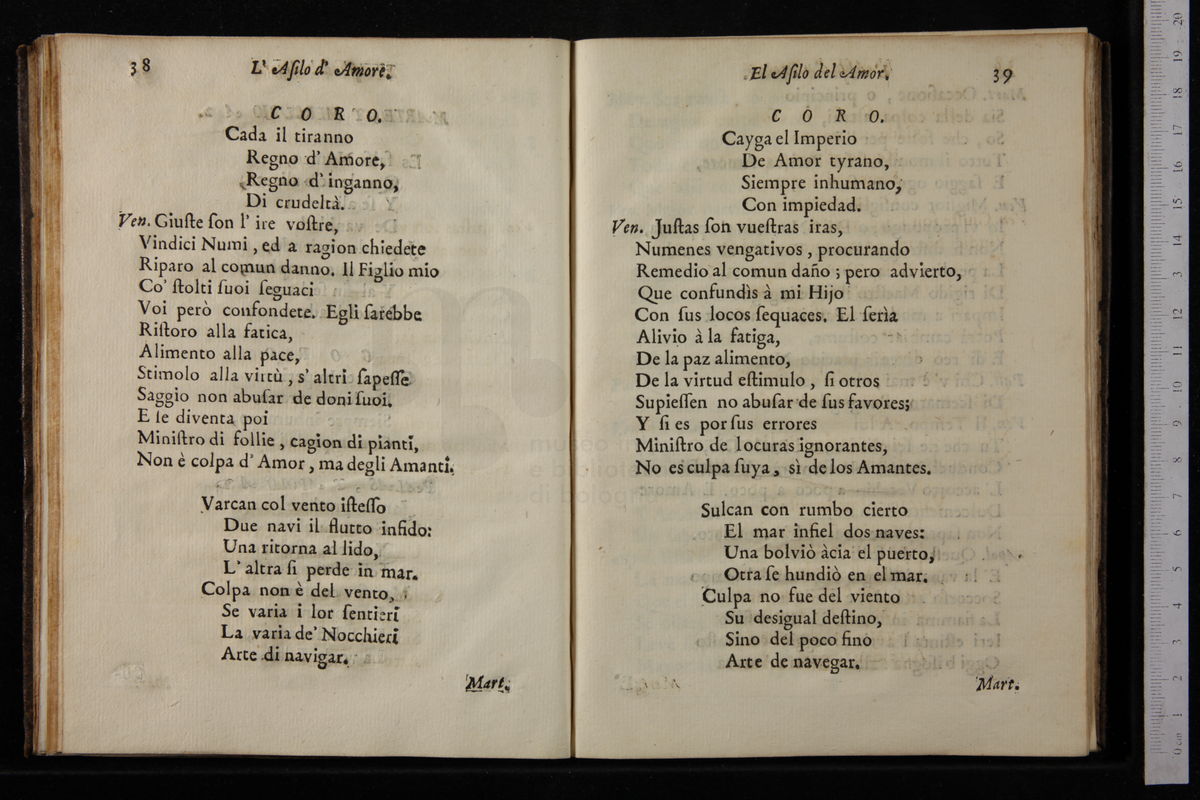 38
L' Aſilo d' Amore.
CORO.
Cada il tiranno
Regno d' Amore,
Regno d' inganno,
Di crudeltà.
Ven. Giuſte ſon l' ire voſtre,
Vindici Numi, ed a ragion chiedete
Riparo al comun danno. Il Figlio mio
Co' ſtolti ſuoi ſeguaci
Voi però confondete. Egli ſarebbe
Riſtoro alla fatica,
Alimento alla pace,
Stimolo alla virtù, s' altri ſapeſſe
Saggio non abuſar de doni ſuoi.
E ſe diventa poi
Miniſtro di follie, cagion di pianti,
Non è colpa d' Amor, ma degli Amanti.
Varcan col vento iſteſſo
Due navi il flutto infido:
Una ritorna al lido,
L' altra ſi perde in mar.
Colpa non è del vento,
Se varia i lor ſentieri
La varia de' Nocchieri
Arte di navigar.
Mart.
El Aſilo del Amor.
39
CORO.
Cayga el Imperio
De Amor tyrano,
Siempre inhumano,
Con impiedad.
Ven. Juſtas ſon vueſtras iras,
Numenes vengativos, procurando
Remedio al comun daño; pero advierto,
Que confundìs à mi Hijo
Con ſus locos ſequaces. El ſerìa
Alivio à la fatiga,
De la paz alimento,
De la virtud eſtimulo, ſi otros
Supieſſen no abuſar de ſus favores;
Y ſi es por ſus errores
Miniſtro de locuras ignorantes,
No es culpa ſuya, sì de los Amantes.
Sulcan con rumbo cierto
El mar infiel dos naves:
Una bolviò àcia el puerto,
Otra ſe hundiò en el mar.
Culpa no fue del viento
Su desigual deſtino,
Sino del poco fino
Arte de navegar.
Mart.